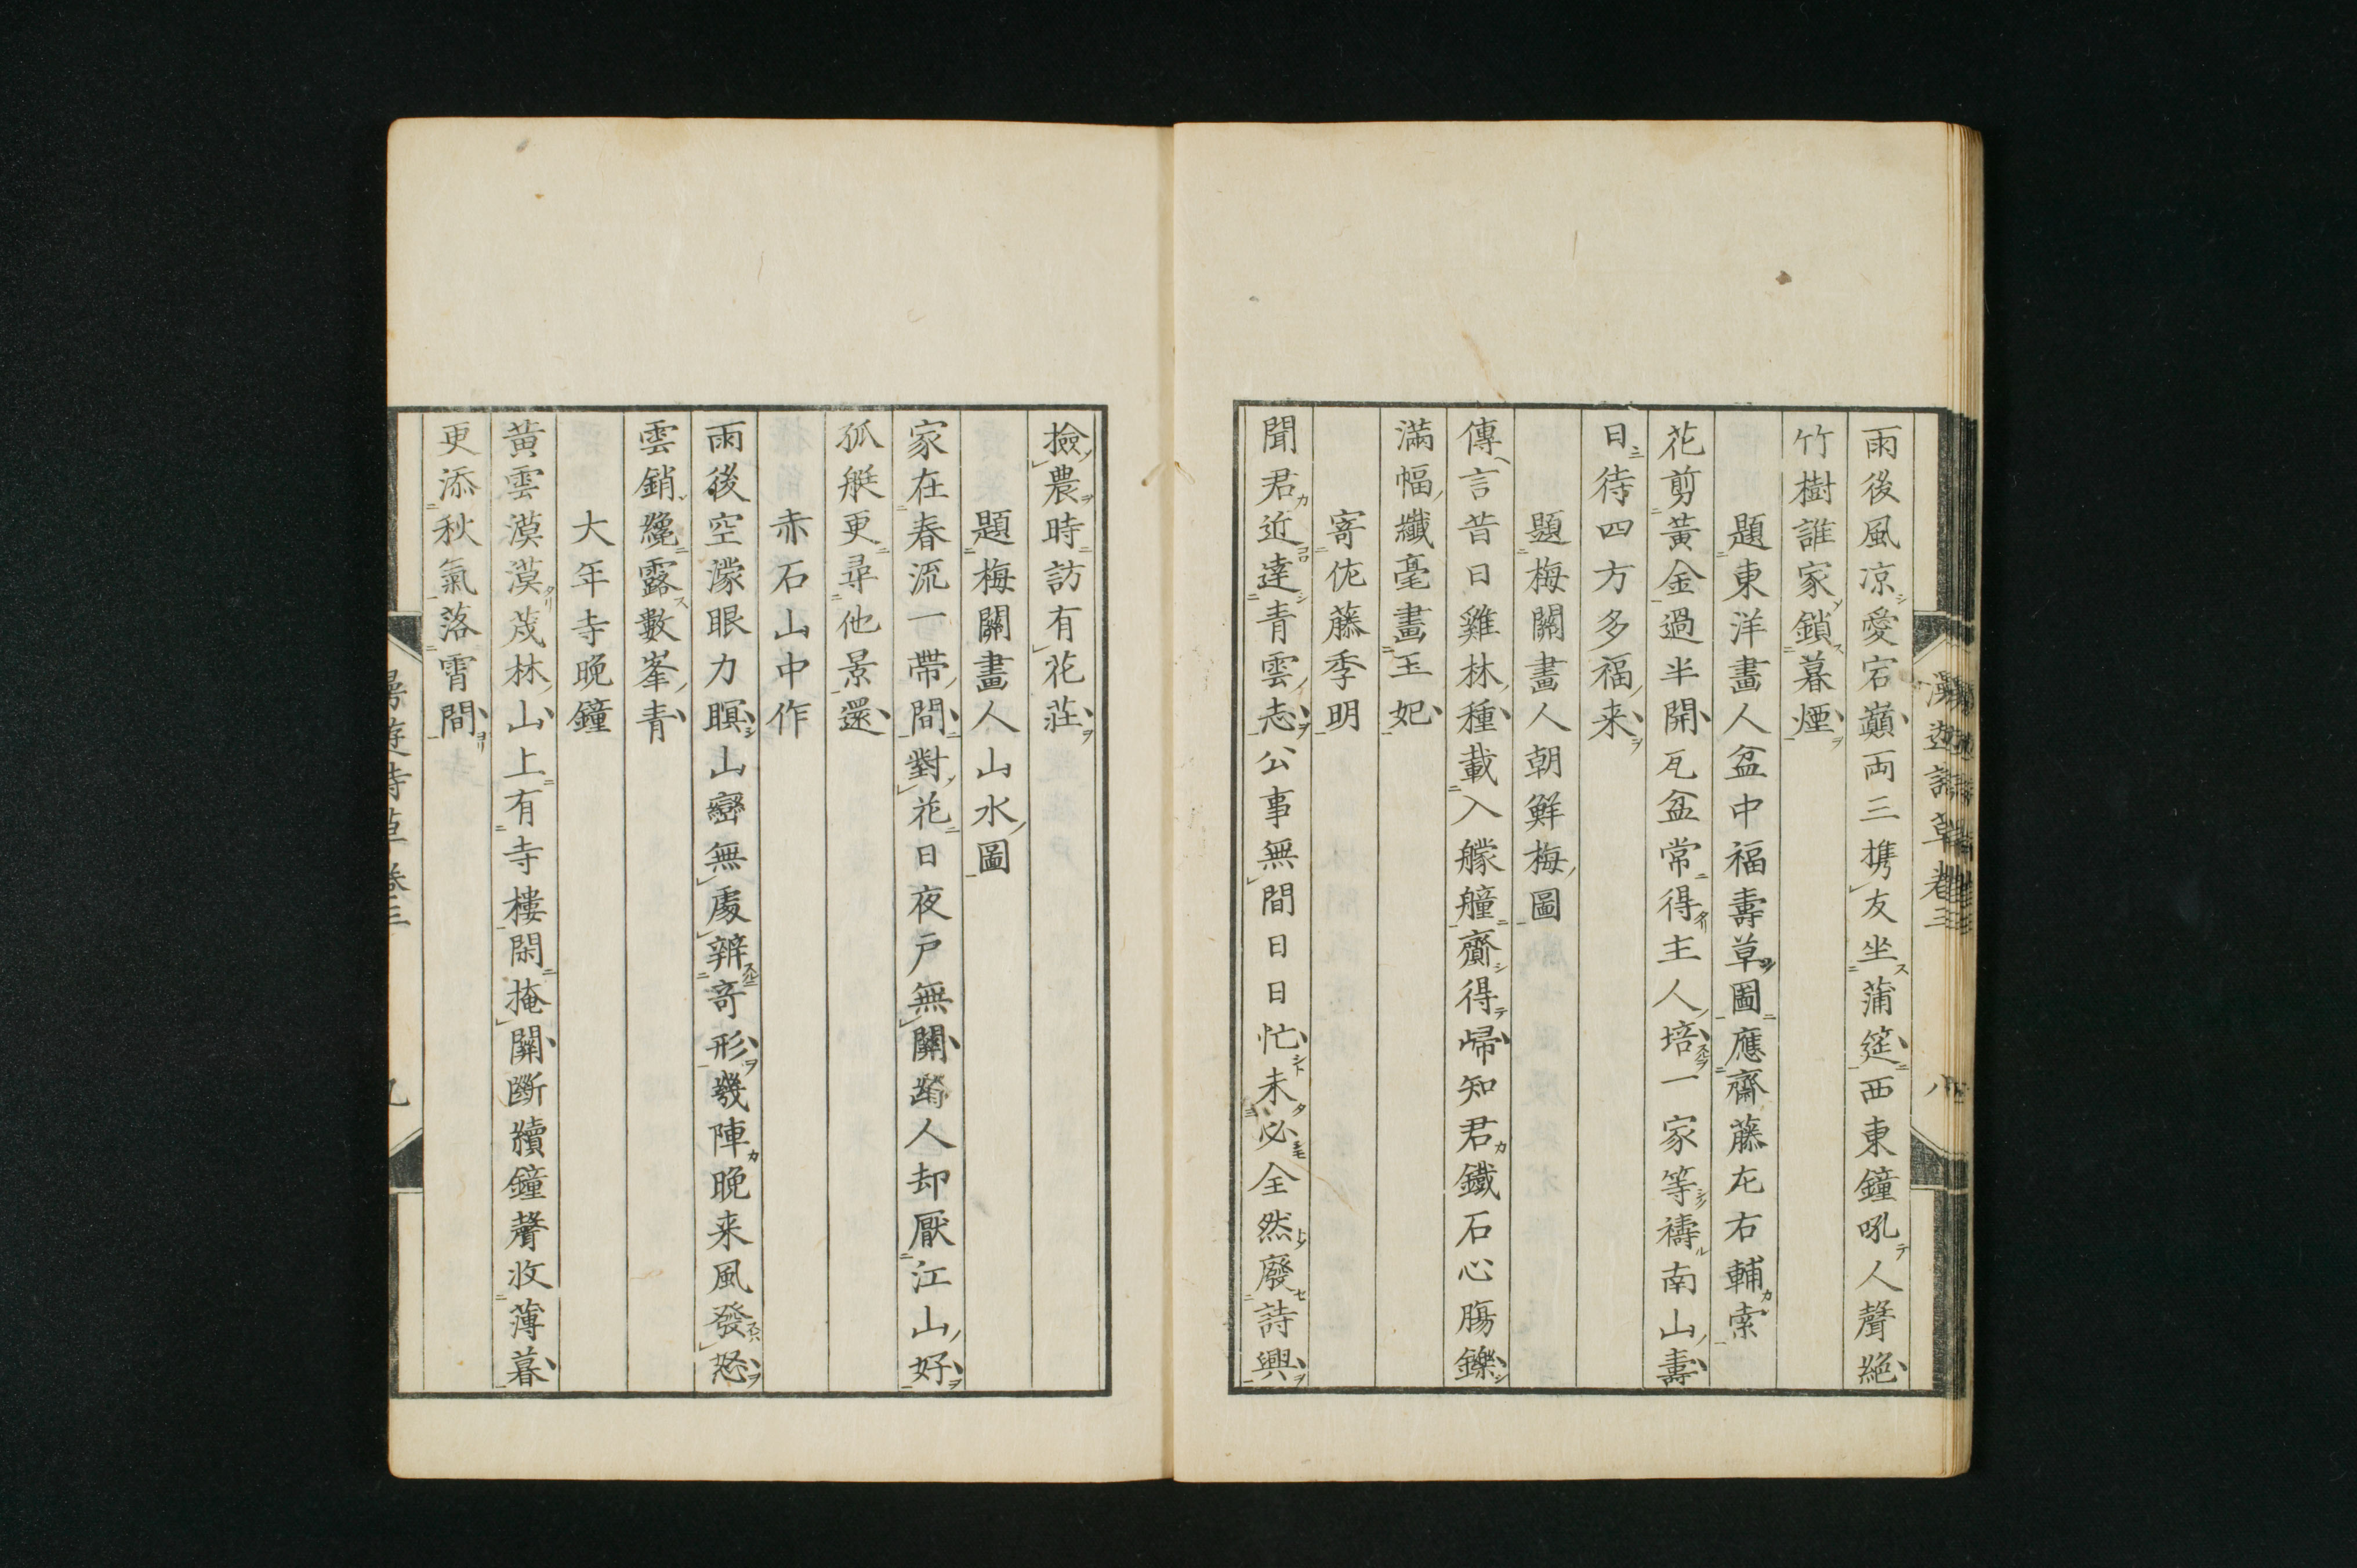 雨後風凉愛宕巔両三携友坐蒲筵西東鐘吼人聲絶
竹樹誰家鎖暮煙
題東洋畫人盆中福壽草圖應齋藤左右輔索
花剪黃金過半開瓦盆常得主人培一家等禱南山壽
日待四方多福来
題梅關畫人朝鮮梅圖
傳言昔日雞林種載入艨艟齎得歸知君鐵石心膓鑠
滿幅纖毫畫玉妃
寄佐藤季明
聞君近達青雲志公事無間日日忙未必全然廢詩興
漫遊詩草卷三
八
撿農時訪有花莊
題梅關畫人山水圖
家在春流一帶間對花日夜戸無關人却厭江山好
孤艇更尋他景還
赤石山中作
雨後空濛眼力瞑山巒無處辨奇形幾陣晚来風發怒
雲銷纔露數峯青
大年寺晚鐘
黄雲漠漠茂林山上有寺樓閑掩關斷續鐘聲收薄暮
更添秋氣落霄間
漫遊詩草卷三
九